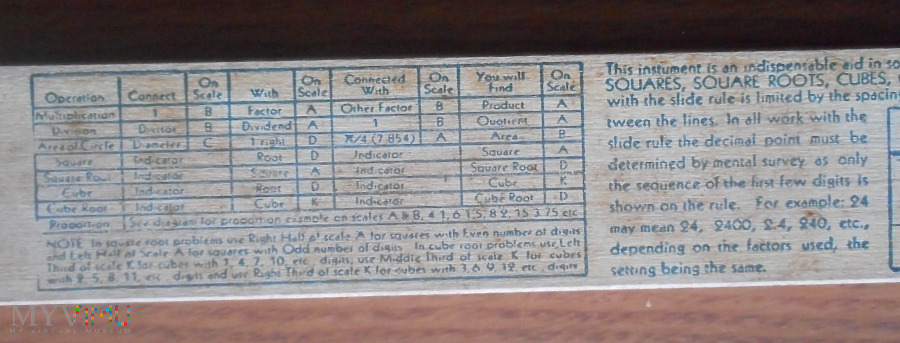 Operation Connect On Scale With On Scale Connected With On Scale You will Find On Scale
Multiplication 1 B Factor A Other Factor B Product A
Division Divisor B Dividend A 1 B Quotient A
Area of Circle Diameter C 1 right D π/4 (7854) A Area B
Square Indicator Root D Indicator Square A
Square Root Indicator Square A Indicator Square Root D
Cube Indicator Root D Indicator Cube K
Cube Root Indicator Cube K Indicator Cube Root D
Proportion See diagram for proportion example on scales A & B, 4 1, 6 1.5, 8 2, 15 3.75 etc
NOTE In square root problems use Right Half of scale A for squares with Even number of digits
and Left Half of Scale A for squares with Odd number of digits. In cube root problems use Left
Third of scale K for cubes with 1, 4, 7, 10, etc. digits, use Middle Third of scale K for cubes
with 2, 5, 8, 11, etc. digits and use Right Third of scale K for cubes with 3, 6, 9, 12, etc. digits
This instument is an indispensable aid in so
SQUARES, SQUARE ROOTS, CUBES,
with the slide rule is limited by the spacin
tween the lines. In all work with the
slide rule the decimal point must be
determined by mental survey as only
the sequence of the first few digits is
shown on the rule. For example: 24
may mean 24, 2400, 2.4, 240, etc.,
depending on the factors used, the
setting being the same.
MYVIMU
MY VIRTUAL MUSEUM